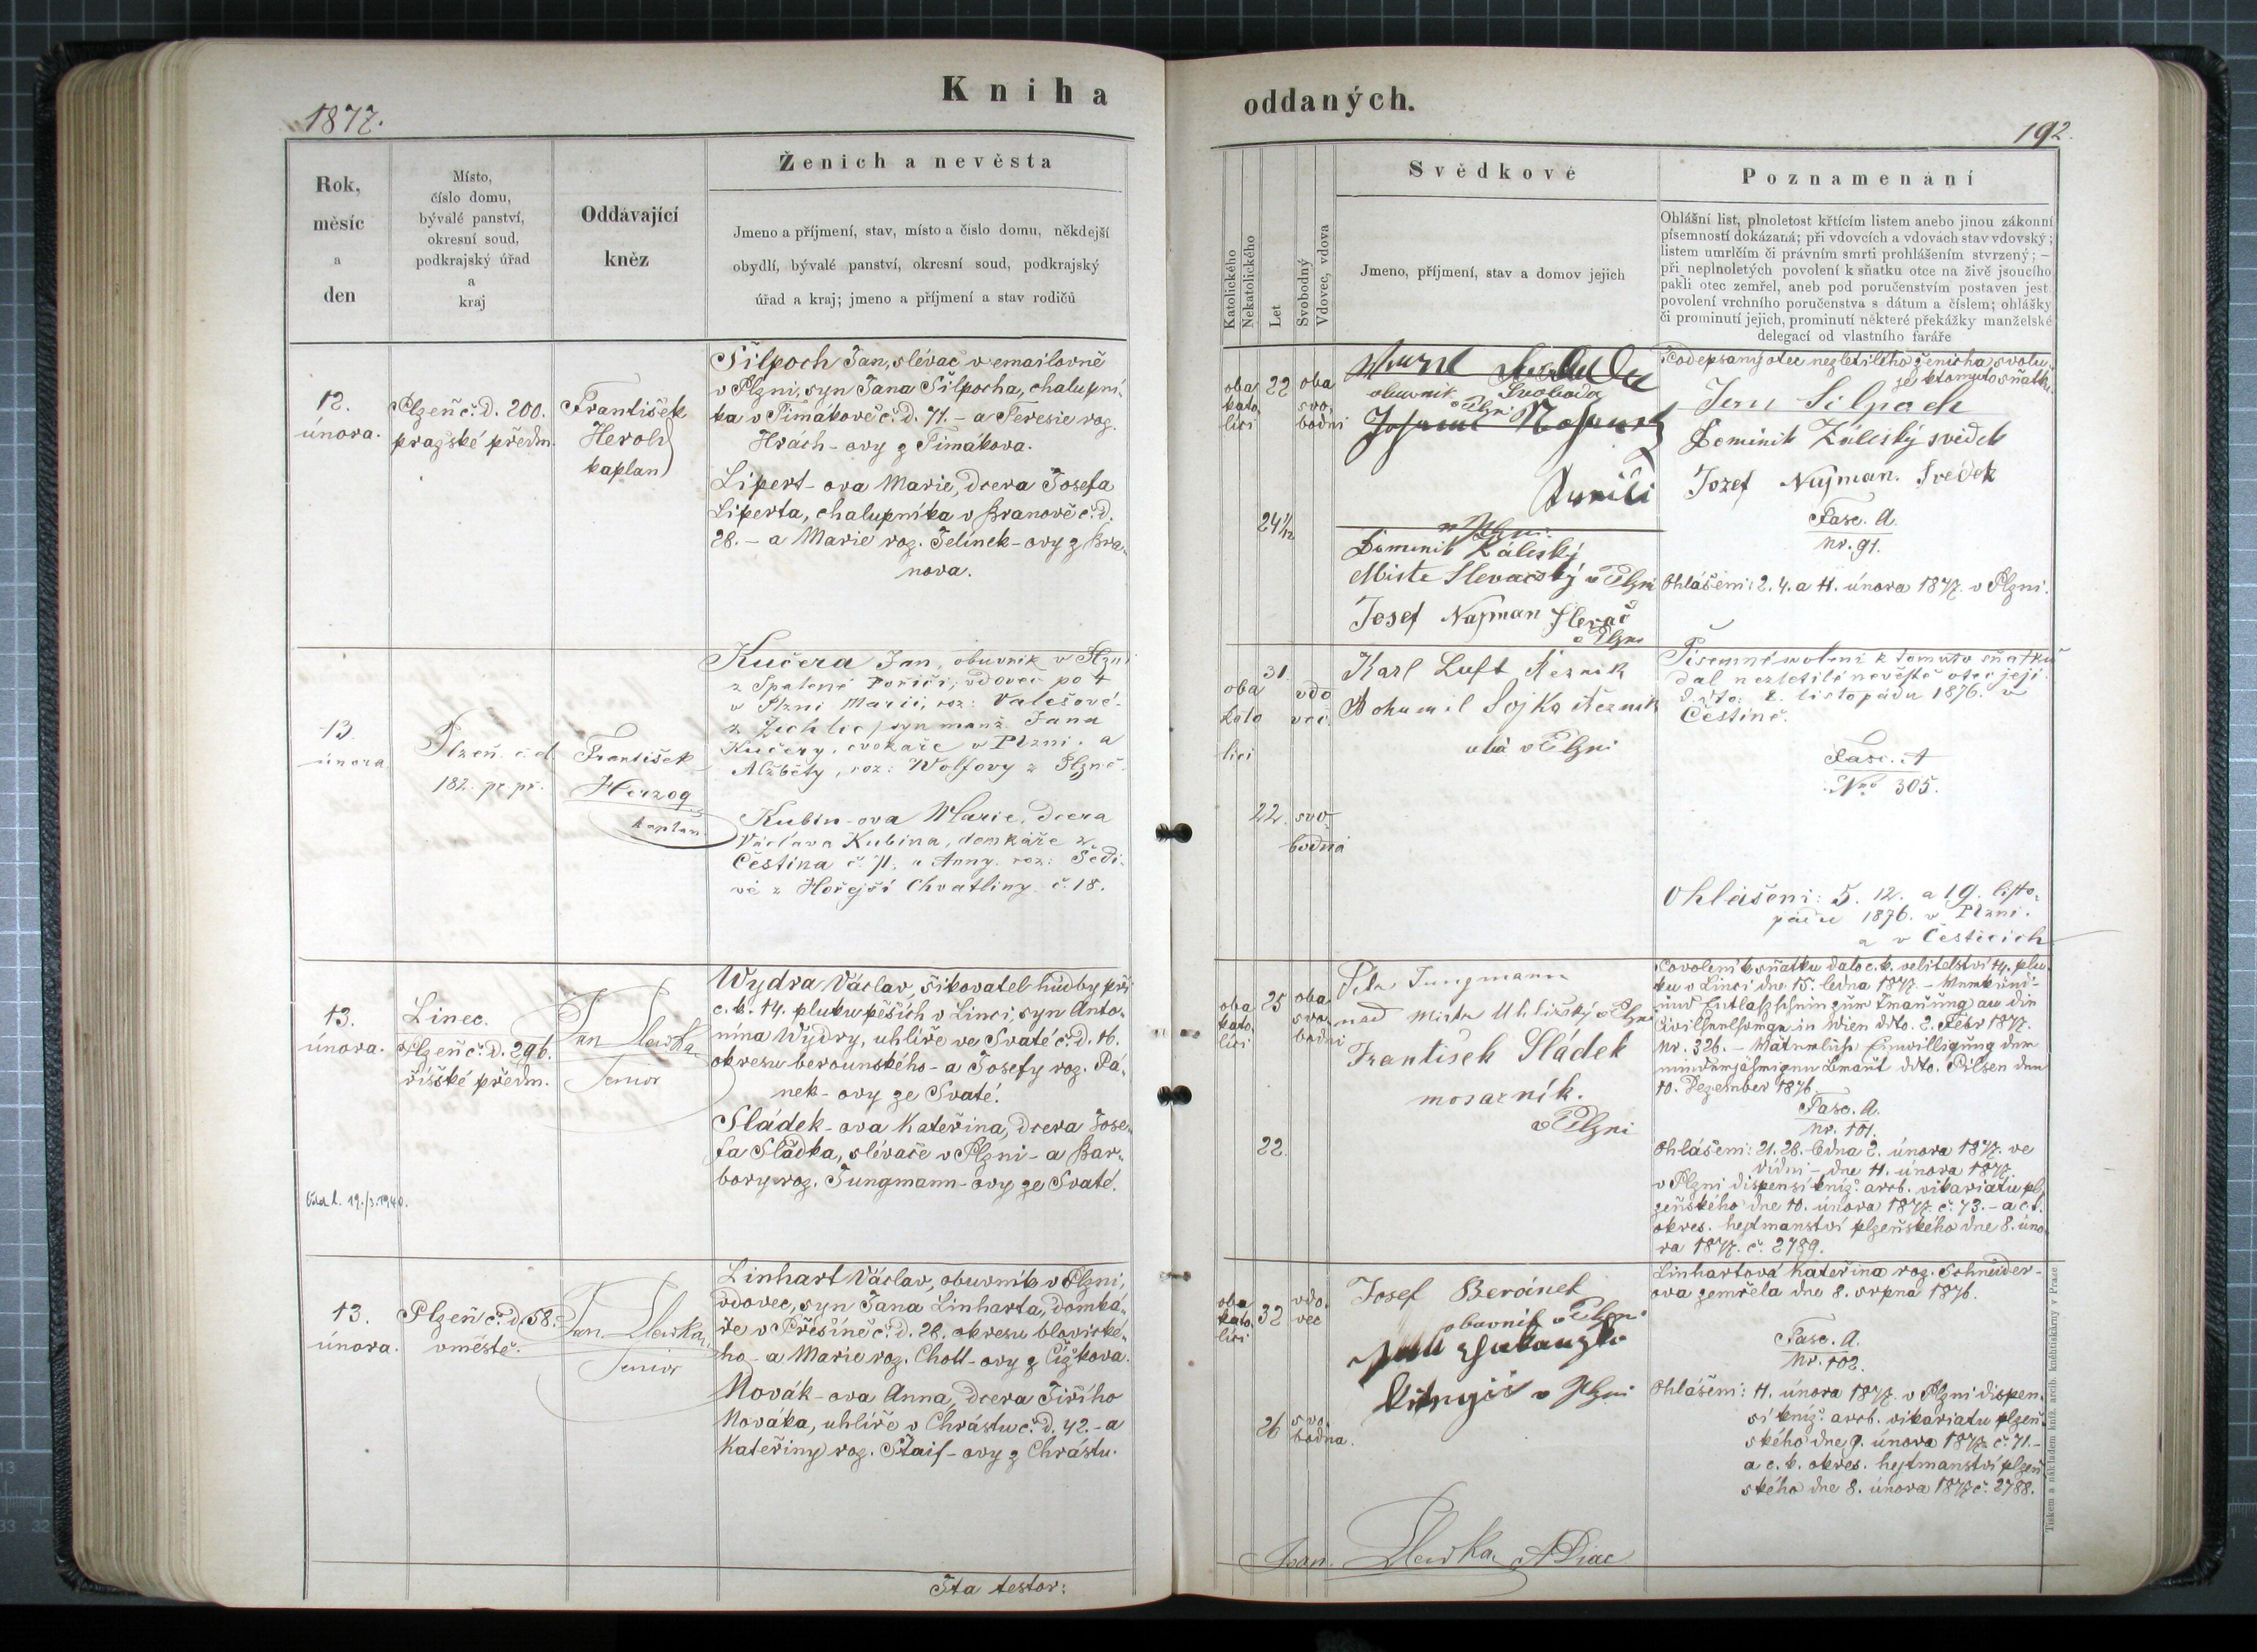 Kniha
oddaných.
1877.
192.
Rok,
měsíc
a
den
Místo,
číslo domu,
bývalé panství,
okresní soud,
podkrajský úřad
a
kraj
Oddávající
kněz
Ženich a nevěsta
Jmeno a příjmení, stav, místo a číslo domu, někdejší
obydlí, bývalé panství, okresní soud, podkrajský
úřad a kraj; jmeno a příjmení a stav rodičů
Katolického
Nekatolického
Let
Svobodný
Vdovec, vdova
Svědkové
Jmeno, příjmení, stav a domov jejich
Poznamenání
Ohlášní list, plnoletost křtícím listem anebo jinou zákonní
písemností dokázaná; při vdovcích a vdovách stav vdovský;
listem umrlčím či právním smrti prohlášením stvrzený; –
při neplnoletých povolení k sňatku otce na živě jsoucího
pakli otec zemřel, aneb pod poručenstvím postaven jest
povolení vrchního poručenstva s dátum a číslem; ohlášky
či prominutí jejich, prominutí některé překážky manželské
delegací od vlastního faráře
12.
února.
Plzeň č. d. 200.
pražské předm.
František
Herold
kaplan
Šilpoch Jan, slévač v emailovně
v Plzni, syn Jana Šilpocha, chalupní-
ka v Timákově č. d. 71. – a Teresie roz.
Hrách-ovy z Timákova.
Lipert-ova Marie, dcera Josefa
Liperta, chalupníka v Branově č. d.
28. – a Marie roz. Jelínek-ovy z Bra-
nova.
oba
kato-
líci
22
oba
svo-
bodni
24 1/12
obuvník Svoboda
v Plzni
Dominik Záleský
Místr Slevačský v Plzni
Josef Najman Slevač
v Plzni
Podepsaný otec nezletilého ženicha svolu-
je k tomuto sňatku
Jan Silpoch
Dominik Záleský svědek
Jozef Najman. Svedek
Fasc. A.
Nr. 91.
Ohlášeni: 2. 4. a 11. února 1877. v Plzni.
13.
února
Plzeň č. d.
182. pr. př.
František
Herzog
kaplan.
Kučera Jan, obuvník v Plzni
z Spálené Poříčí, vdovec po †
v Plzni Marii, roz: Valešové
syn manž. Jana
Kučery, cvokaře v Plzni. a
Alžběty, roz: Wolfovy z Plzně.
Kubín-ova Marie, dcera
Václava Kubína, domkáře z
Čestína č. 71. a Anny. roz: Šedi-
vé z Hořejší Chvatliny č. 18.
oba
kato
líci
31.
vdo
vec.
22.
svo-
bodná
Karl Luft Řezník
Bohumil Sojka řezník
oba v Plzni
Písemné svolení k tomuto sňatku
dal nezletilé nevěstě otec její
ddto: 2. listopádu 1876. v
Čestíně.
Fasc. A
Nro 305.
Ohlášeni: 5. 12. a 19. listo-
pádu 1876. v Plzni.
a v Česticich
13.
února.
Linec.
Plzeň č. d. 296.
říšské předm.
Jan Slewka
Senior
Wydra Václav, šikovatel hudby při
c. k. 14. pluku pěších v Linci, syn Anto-
nína Wydry, uhlíře ve Svaté č. d. 16.
okresu berounského – a Josefy roz. Pá-
nek-ovy ze Svaté.
Sládek-ova Kateřina, dcera Jose-
fa Sládka, slévače v Plzni – a Bar-
bory roz. Jungmann-ovy ze Svaté.
oba
kato-
líci
25
oba
svo-
bodni
22.
Petr Jungmann
nad Mistr Uhlířský v Plzni
František Sládek
mosazník.
v Plzni
Povolení k sňatku dalo c. k. velitelství 14. plu-
ku v Linci dne 15. ledna 1877. –
in Wien ddto. 2. Febr 1877.
Nr. 326. – Einwilligung der
ddto. Pilsen den
10. Dezember 1876
Fasc. A.
Nr. 101.
Ohlášeni: 21. 28. ledna 2. února 1877. ve
Vídni – dne 11. února 1877.
v Plzni dispensí kníž. arcb. vikariatu pl-
zeňského dne 10. února 1877. č. 73. – a c. k.
okres. hejtmanství plzeňského dne 8. úno-
ra 1877. č. 2789.
13.
února.
Plzeň č. d. 58.
v městě.
Jan Slewka
Senior
Linhart Václav, obuvník v Plzni,
vdovec, syn Jana Linharta, domká-
ře v Přešíně č. d. 28. okresu blovické-
ho – a Marie roz. Chott-ovy z Čížkova.
Novák-ova Anna, dcera Jiřího
Nováka, uhlíře v Chrástu č. d. 42. – a
Kateřiny roz. Štaif-ovy z Chrástu.
oba
kato-
líci
32
vdo-
vec
26
svo-
bodna.
Josef Beránek
obuvník v Plzni
v Plzni
Linhartová Kateřina roz. Schneider-
ova zemřela dne 8. srpna 1876.
Fasc. A.
Nr. 102.
Ohlášeni: 11. února 1877. v Plzni dispen-
sí kníž. arcb. vikariatu plzeň-
ského dne 9. února 1877. č. 71. –
a c. k. okres. hejtmanství plzeň-
ského dne 8. února 1877 č. 2788.
Ita testor:
Joan. Slewka, ADiac
Tiskem a nákladem kníž. arcib. knihtiskárny v Praze